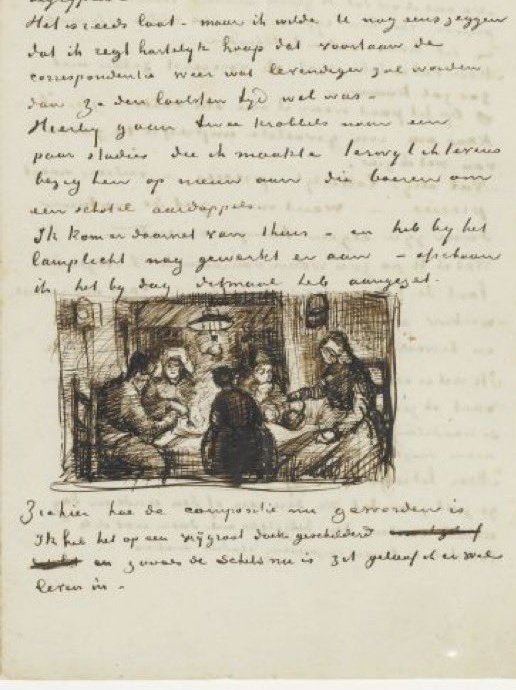 Het is reeds laat – maar ik wilde U nog eens zeggen
dat ik regt hartelijk hoop dat voortaan de
correspondentie weer wat levendiger zal worden
dan ze den laatsten tijd wel was –
Hierbij gaan twee krabbels naar een
paar studies die ik maakte terwijl ik tevens
bezig ben op nieuw aan die boeren om
een schotel aardappels
Ik kom er daarnet van thuis – en heb bij het
lamplicht nog gewerkt er aan – ofschoon
ik het bij dag ditmaal heb aangezet.
Ziehier hoe de compositie nu geworden is
Ik heb het op een vrij groot doek geschilderd
en zooals de schets nu is zit geloof ik er wel
leven in –